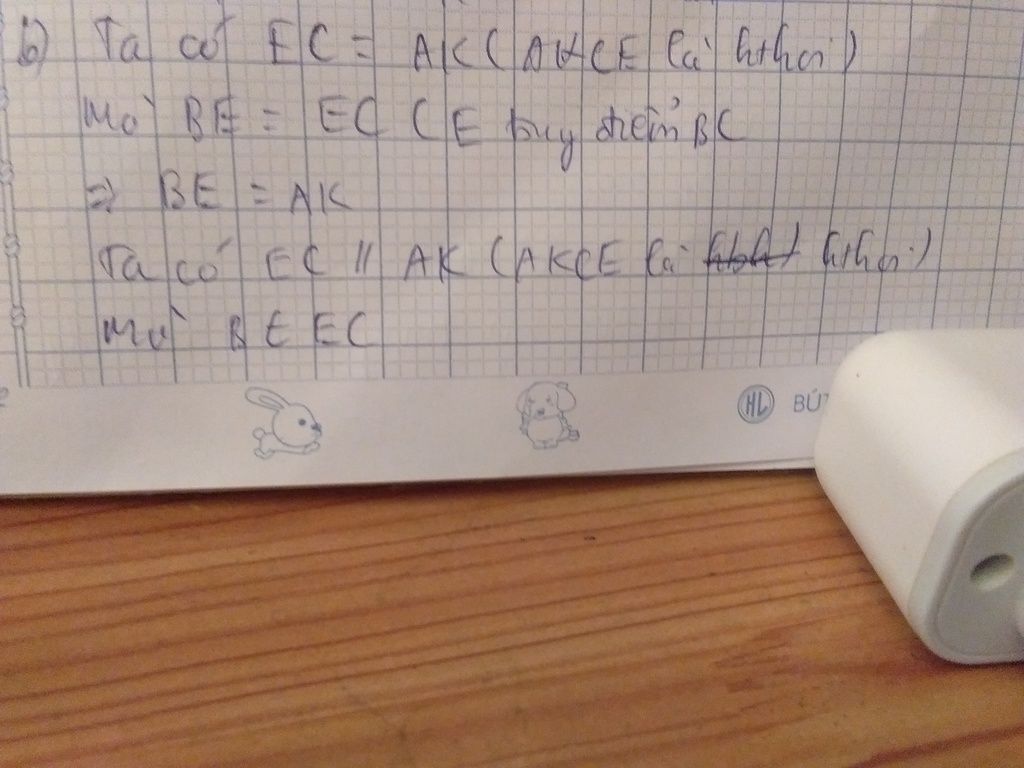 b) Ta có EC = AK ( AKCE là hthoi )
Mà BE = EC ( E trung điểm BC
=> BE = AK
Ta có EC // AK ( AKCE là hthoi )
Mà B E EC
HL BÚT